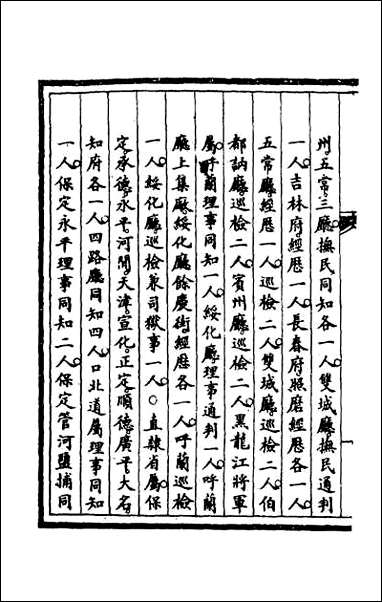 州。五常。三廳。撫民同知各一人。雙城廳。撫民通判
一人。吉林府。經歷一人。長春府。照磨經歷各一人。
五常廳。經歷一人。巡檢二人。雙城廳。巡檢二人。伯
都訥廳。巡檢二人。賓州廳。巡檢二人。黑龍江將軍
屬。呼蘭理事同知一人。綏化廳。理事通判一人。呼蘭
廳上集廠。綏化廳餘慶街。經歷各一人。呼蘭巡檢
一人。綏化廳。巡檢兼司獄事一人。○直隸省屬。保
定。承德。永平。河間。天津。宣化。正定。順德。廣平。大名。
知府各一人。四路廳同知四人。口北道屬理事同知
一人。保定永平理事同知二人。保定管河鹽捕同